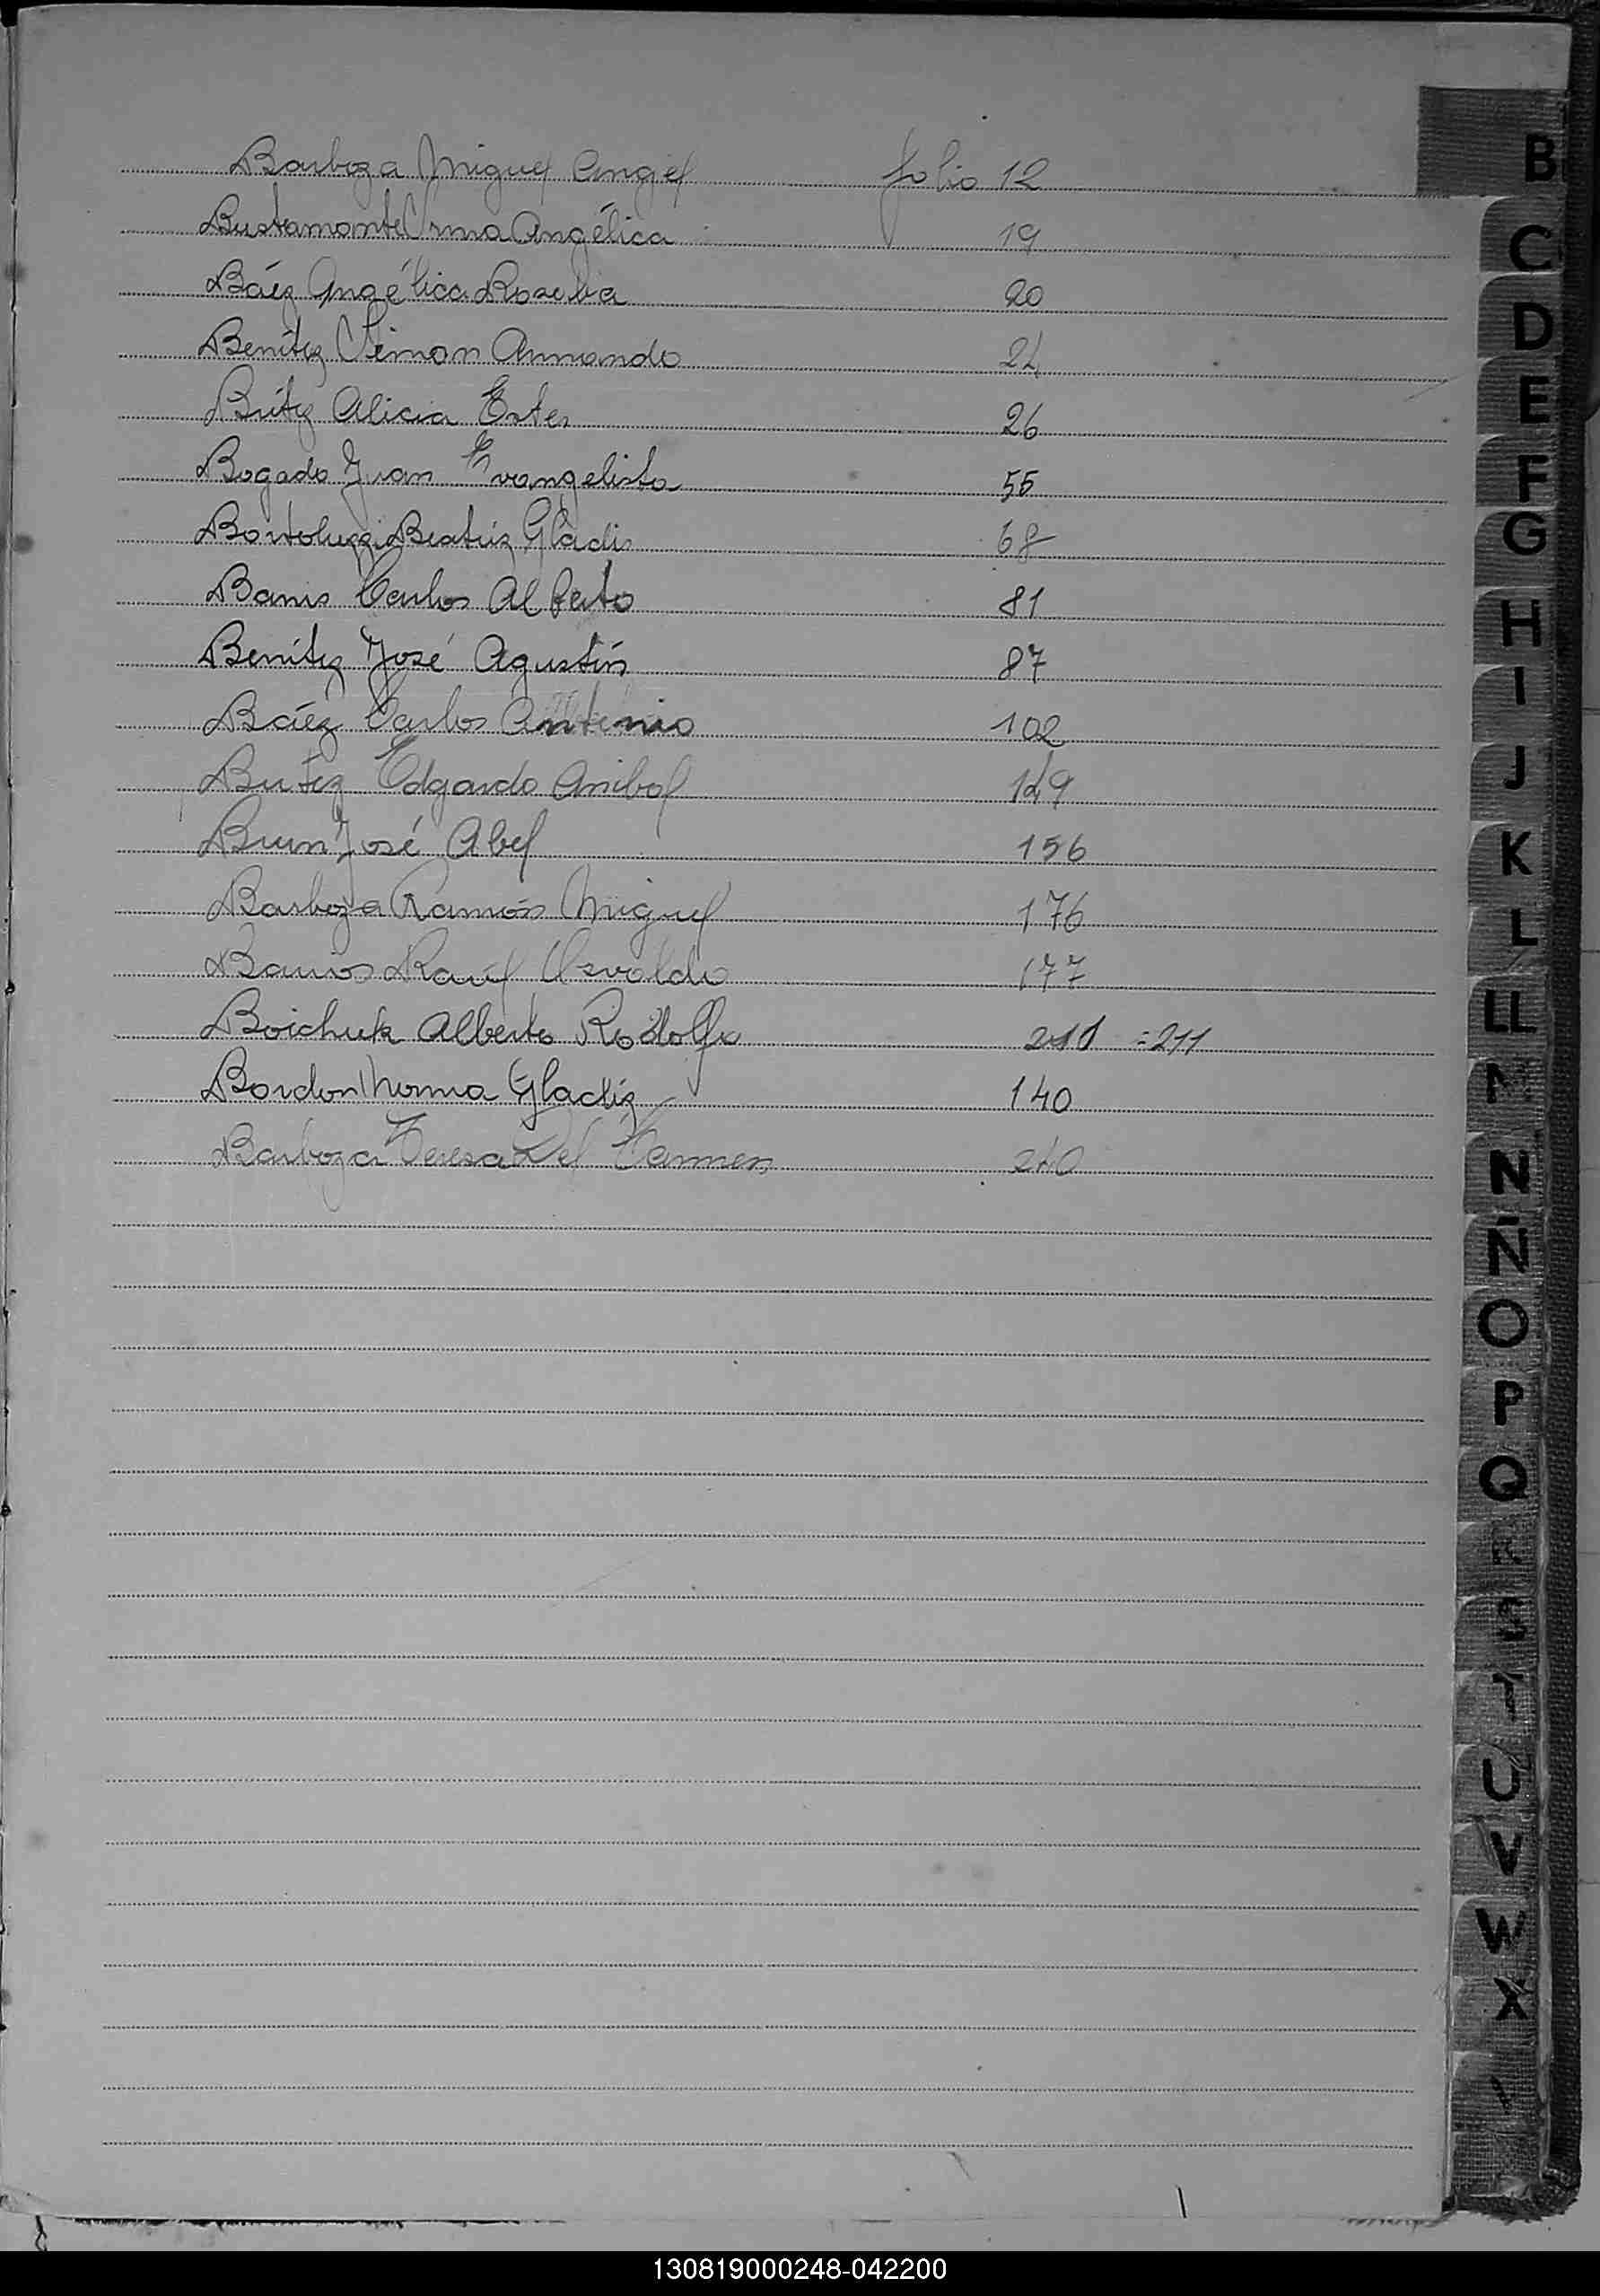 Barboza Miguel Angel folio 12
Bustamante Irma Angélica 19
Báez Angélica Roselia 20
Benítez Simon Armando 24
Britez Alicia Ester 26
Bogado Juan Evangelista 55
Bortoluzzi Beatriz Gladis 68
Banis Carlos Alberto 81
Benítez José Agustín 87
Báez Carlos Antonio 102
Britez Edgardo Anibal 149
Brun José Abel 156
Barboza Ramón Miguel 176
Barrios Raúl Osvaldo 177
Boichuk Alberto Rodolfo 211 =211
Bordon Norma Gladiz 140
Barboza Teresa Del Carmen 240
B
C
D
E
F
G
H
I
J
K
L
LL
M
N
Ñ
O
P
Q
R
S
T
U
V
W
X
130819000248-042200